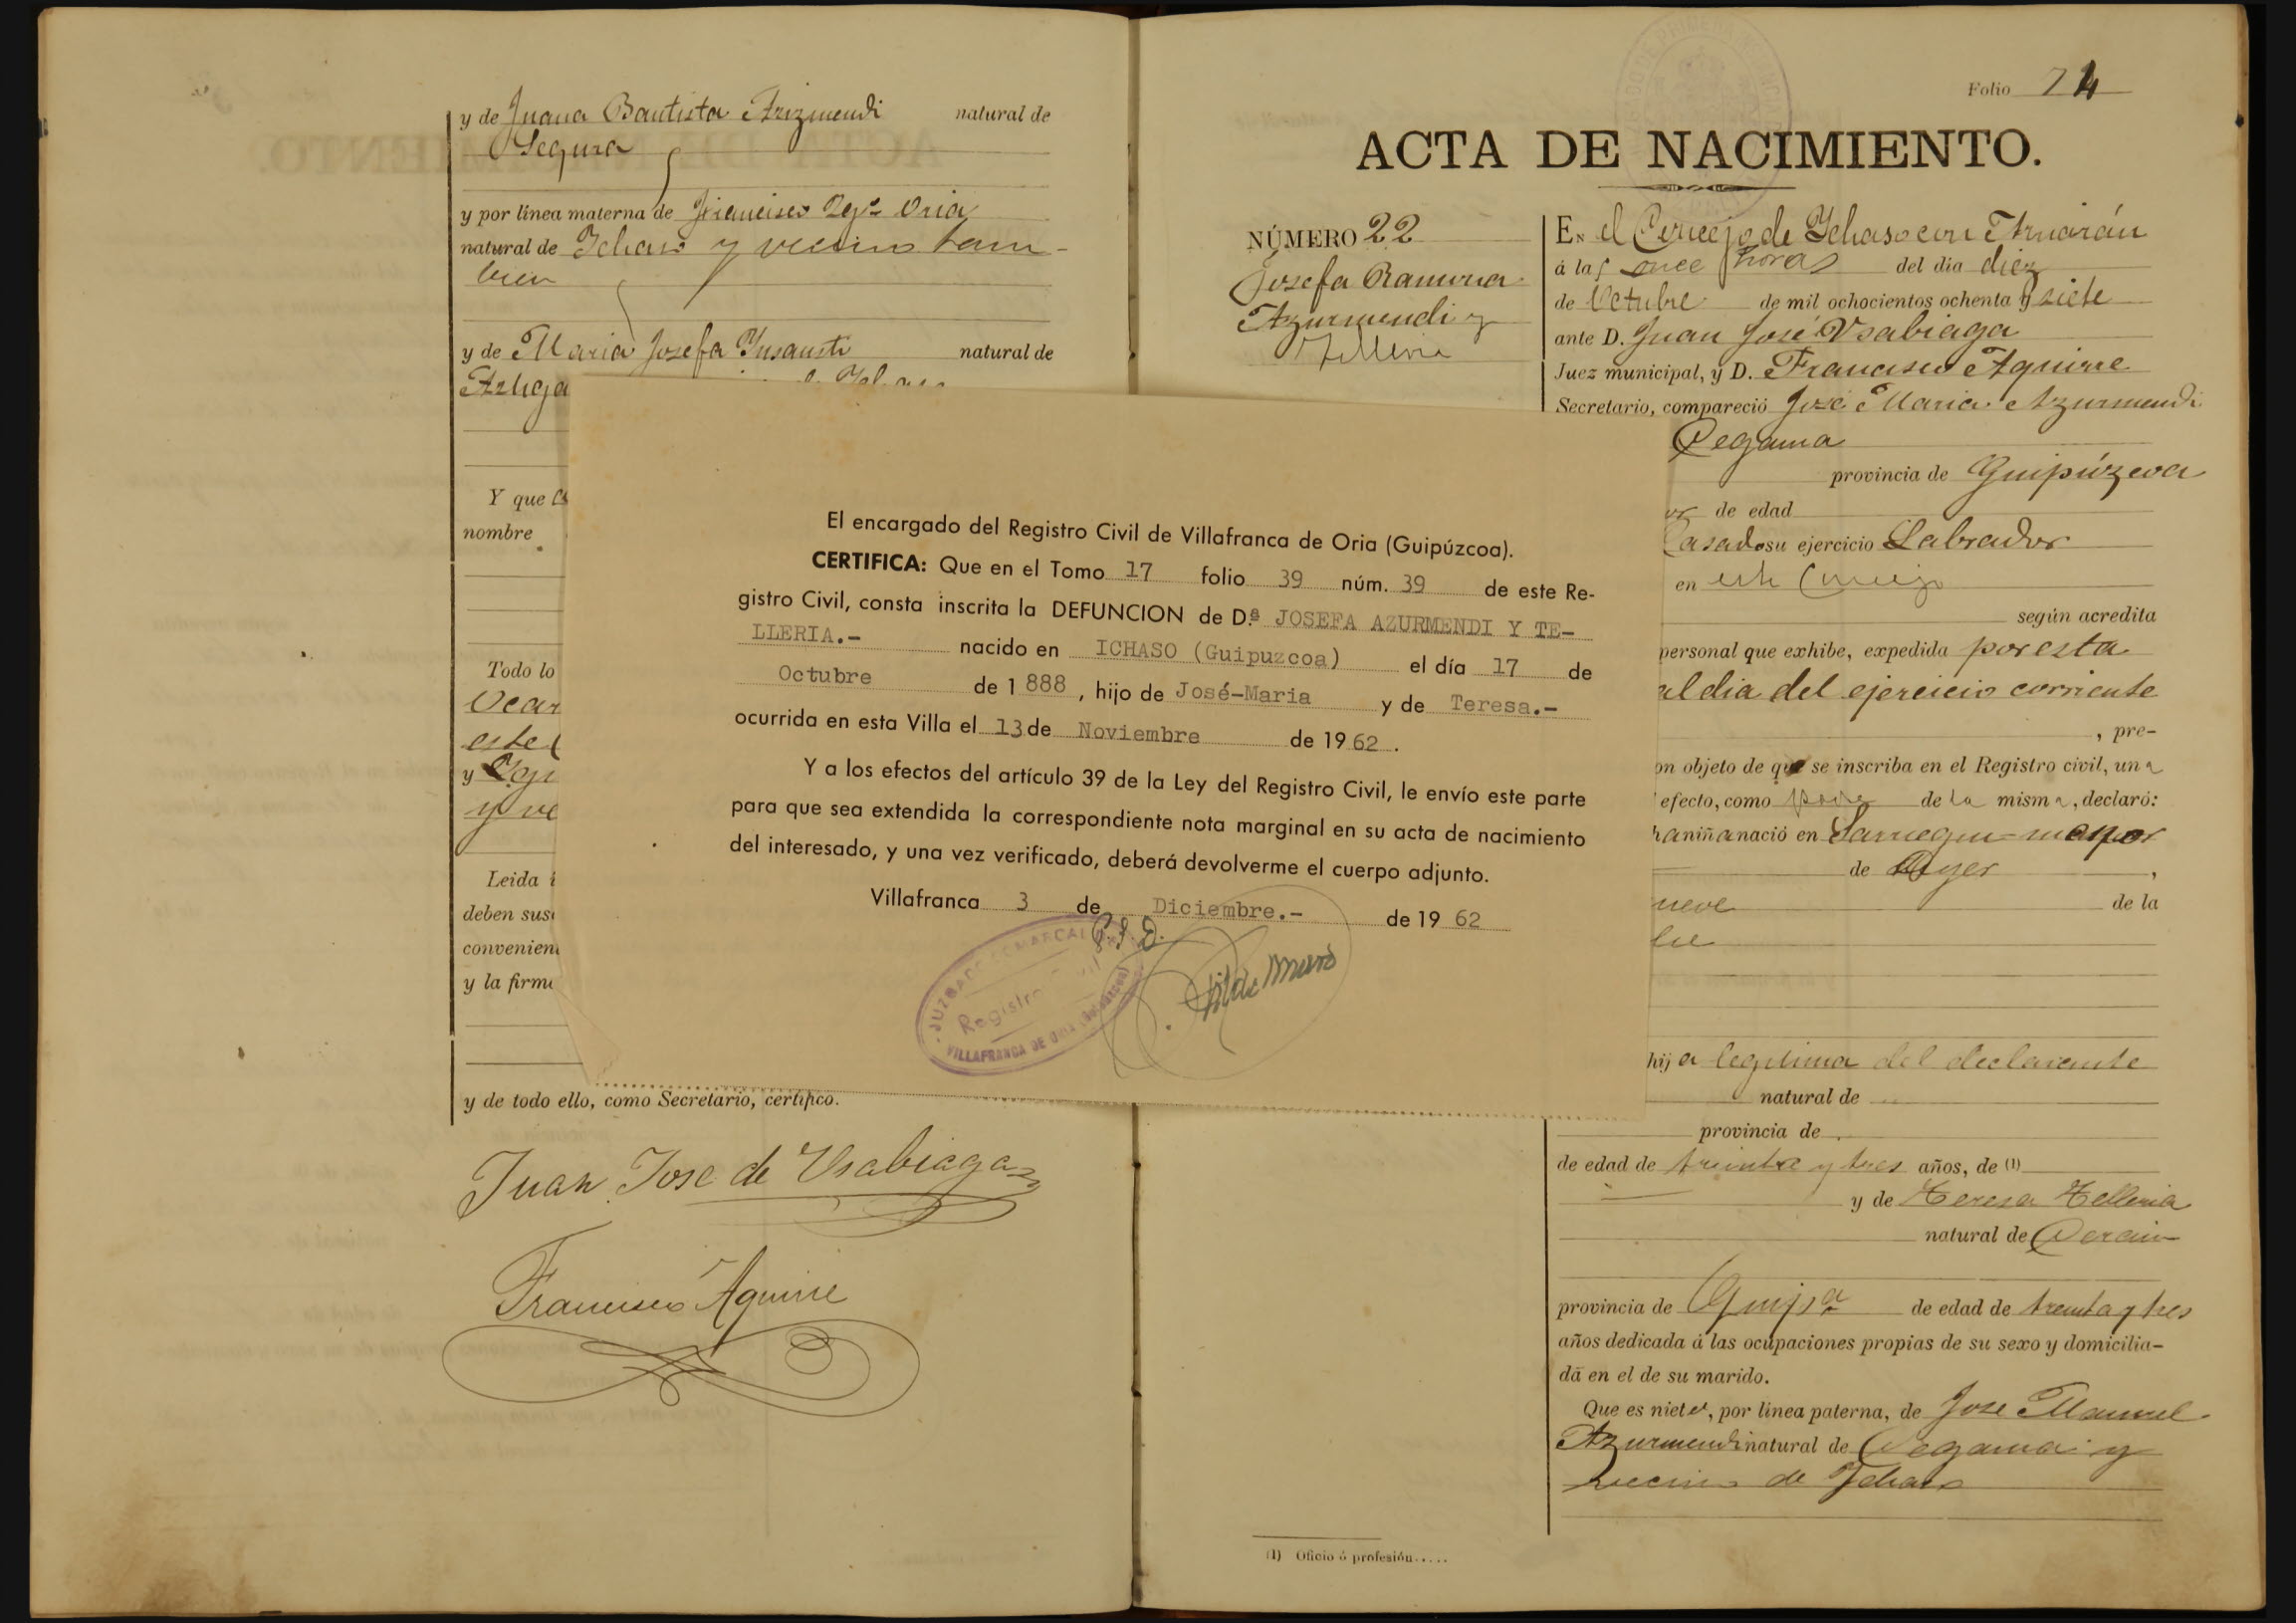 y de Juana Bautista Arizmendi natural de
Segura
y por línea materna de Francisco Ygo. Oria
natural de Ichaso y vecino tam-
bien
y de Maria Josefa Ynsausti natural de
Y que
nombre
Todo lo
este
y
y ve
Leida
deben sus
convenien
y la firm
y de todo ello, como Secretario, certifico.
Juan Jose de Usabiaga
Francisco Aguirre
El encargado del Registro Civil de Villafranca de Oria (Guipúzcoa).
CERTIFICA: Que en el Tomo 17 folio 39 núm. 39 de este Re-
gistro Civil, consta inscrita la DEFUNCION de D.ª JOSEFA AZURMENDI Y TE-
LLERIA.- nacido en ICHASO (Guipuzcoa) el día 17 de
Octubre de 1 888, hijo de José-Maria y de Teresa.-
ocurrida en esta Villa el 13 de Noviembre de 19 62.
Y a los efectos del artículo 39 de la Ley del Registro Civil, le envío este parte
para que sea extendida la correspondiente nota marginal en su acta de nacimiento
del interesado, y una vez verificado, deberá devolverme el cuerpo adjunto.
Villafranca 3 de Diciembre.- de 19 62
P.S.D.
JUZGADO COMARCAL
Registro Civil
VILLAFRANCA DE ORIA (GUIPUZCOA)
Folio 74
ACTA DE NACIMIENTO.
NÚMERO 22
Josefa Ramona
Azurmendi y
Telleria
En el Concejo de Ychaso con Arriarán
á las once horas del dia diez
de Octubre de mil ochocientos ochenta y siete
ante D. Juan José Usabiaga
Juez municipal, y D. Francisco Aguirre
Secretario, compareció José Maria Azurmendi
Cegama
provincia de Guipúzcoa
or de edad
Casado su ejercicio Labrador
en este Concejo
según acredita
personal que exhibe, expedida por esta
al dia del ejercicio corriente
, pre-
on objeto de que se inscriba en el Registro civil, una
efecto, como padre de la misma, declaró:
ha niña nació en Sarriegui-mayor
de Ayer,
nueve de la
hija legitima del declarante
natural de
provincia de
de edad de treinta y tres años, de (1)
y de Teresa Telleria
natural de Cerain
provincia de Guip.a de edad de treinta y tres
años dedicada á las ocupaciones propias de su sexo y domicilia-
da en el de su marido.
Que es nieta, por línea paterna, de Jose Manuel
Azurmendi natural de Cegama y
vecino de Ychaso
(1) Oficio ó profesión.....